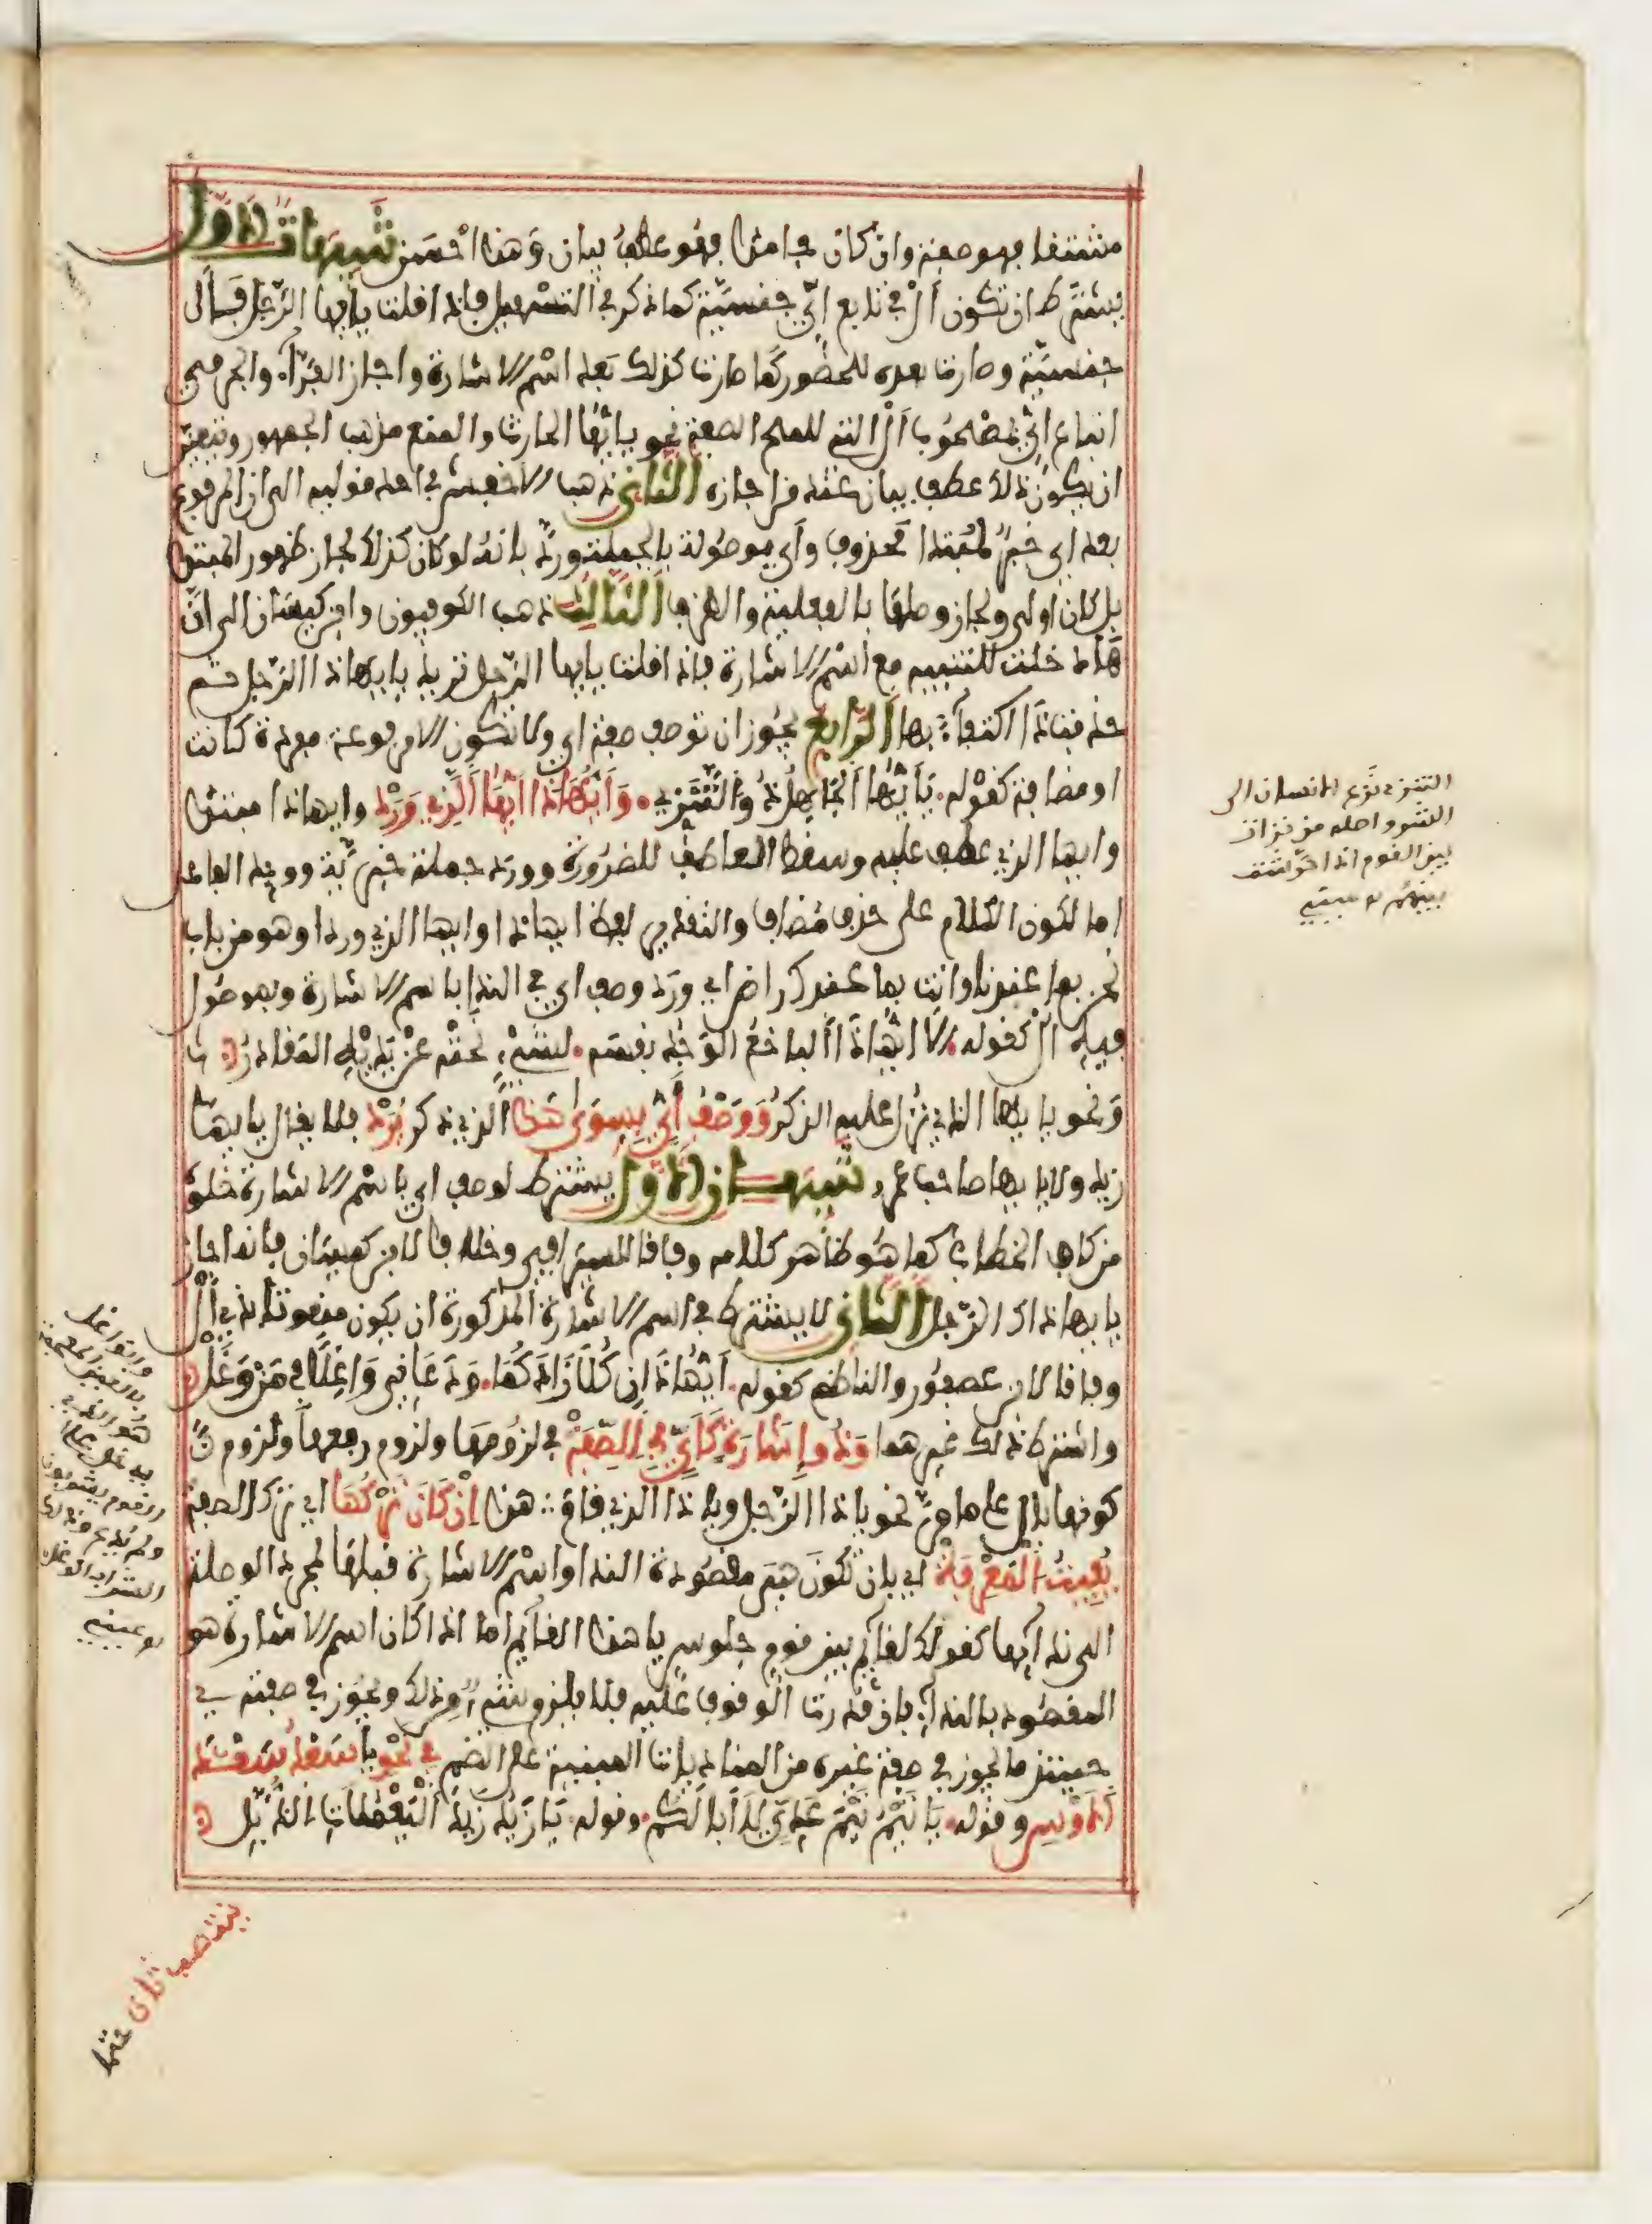 مشتقا فهو صفة وان كان جامدا فهو عطف بيان وهذا احسن تنبيهات الاول
يشترط ان تكون ال في تابع اي جنسية كما ذكر في التسهيل فاذا قلت يا يها الرجل فال
جنسية وصارت بعده للحضور كما صارت كذلك بعد اسم الاشارة واجاز الفراء والجرمي
اتباع اي بمصحوب ال التي للمح الصفة نحو يا يها الحارث والمنع مذهب الجمهور ويتعين
ان يكون ذلك عطف بيان عند من اجازه الثاني ذهب الاخفش في احد قوليه الى ان المرفوع
بعد اي خبر لمبتدا محذوف واي موصولة بالجملة ورد بانه لو كان كذلك لجاز ظهور المبتدا
بل كان اولى ولجاز وصلها بالفعلية والظرف الثالث ذهب الكوفيون وابن كيسان الى ان
ها دخلت للتنبيه مع اسم الاشارة فاذا قلت يا يها الرجل تريد يا يهاذا الرجل ثم
حذف ذا اكتفاء بها الرابع يجوز ان توصف صفة اي ولا تكون الا مرفوعة مفردة كانت
او مضافة كقوله يا يها الجاهل ذو التنزي وايهاذا ايها الذي ورد وايهاذا مبتدا
وايها الذي عطف عليه وسقط العاطف للضرورة وورد جملة خبرية ووحد الفاعل
اما لكون الكلام على حذف مضاف والتقدير لفظ ايهاذا وايها الذي ورد او هو من باب
نحن بما عندنا وانت بما عندك راض اي ورد وصف اي في الندا باسم الاشارة وبموصول
فيه ال كقوله الا ايهاذا الباخع الوجد نفسه لشيء نحته عن يديه المقادر
ونحو يا يها الذي نزل عليه الذكر ووصف اي بسوى هذا الذي ذكر يرد فلا يقال يا يها
زيد ولا يا يها صاحب عمرو تنبيهان الاول يشترط لوصف اي باسم الاشارة خلوه
من كاف الخطاب كما هو ظاهر كلامه وفاقا للسيرافي وخلافا لابن كيسان فانه اجاز
يا يهاذاك الرجل الثاني لا يشترط في اسم الاشارة المذكورة ان يكون منعوتا بذي ال
وفاقا لابن عصفور والناظم كقوله ايهاذان كلا زادكما ودعاني واغلا في من وغل
واشترط ذلك غيرهما وذو اشارة كاي في الصفة في لزومها ولزوم رفعها ولزوم
كونها بال على ما مر نحو يا ذا الرجل ويا ذا الذي قام هذا ان كان تركها اي ترك الصفة
يفيت المعرفة اي بان تكون هي مقصودة الندا واسم الاشارة قبلها لمجرد الوصلة
الى ندائها كقولك لقائم بين قوم جلوس يا هذا القائم اما اذا كان اسم الاشارة هو
المقصود بالنداء بان قدرت الوقوف عليه فلا يلزم شيء من ذلك ويجوز في صفته
حينئذ ما يجوز في صفة غيره من المناديات المبنية على الضم في نحو يا سعد سعد
الاوس وقوله يا تيم تيم عدي لا ابا لكم وقوله يا زيد زيد اليعملات الذبل
ينتصب ثان حتما
التنزي نزع الانسان الى
الشر واصله من نزات
بين القوم اذا حرشت
بينهم
والواغل
بالغين المعجمة
هو الذي
يدخل على
القوم يشربون
ولم يدع وذلك
الشراب الوغل